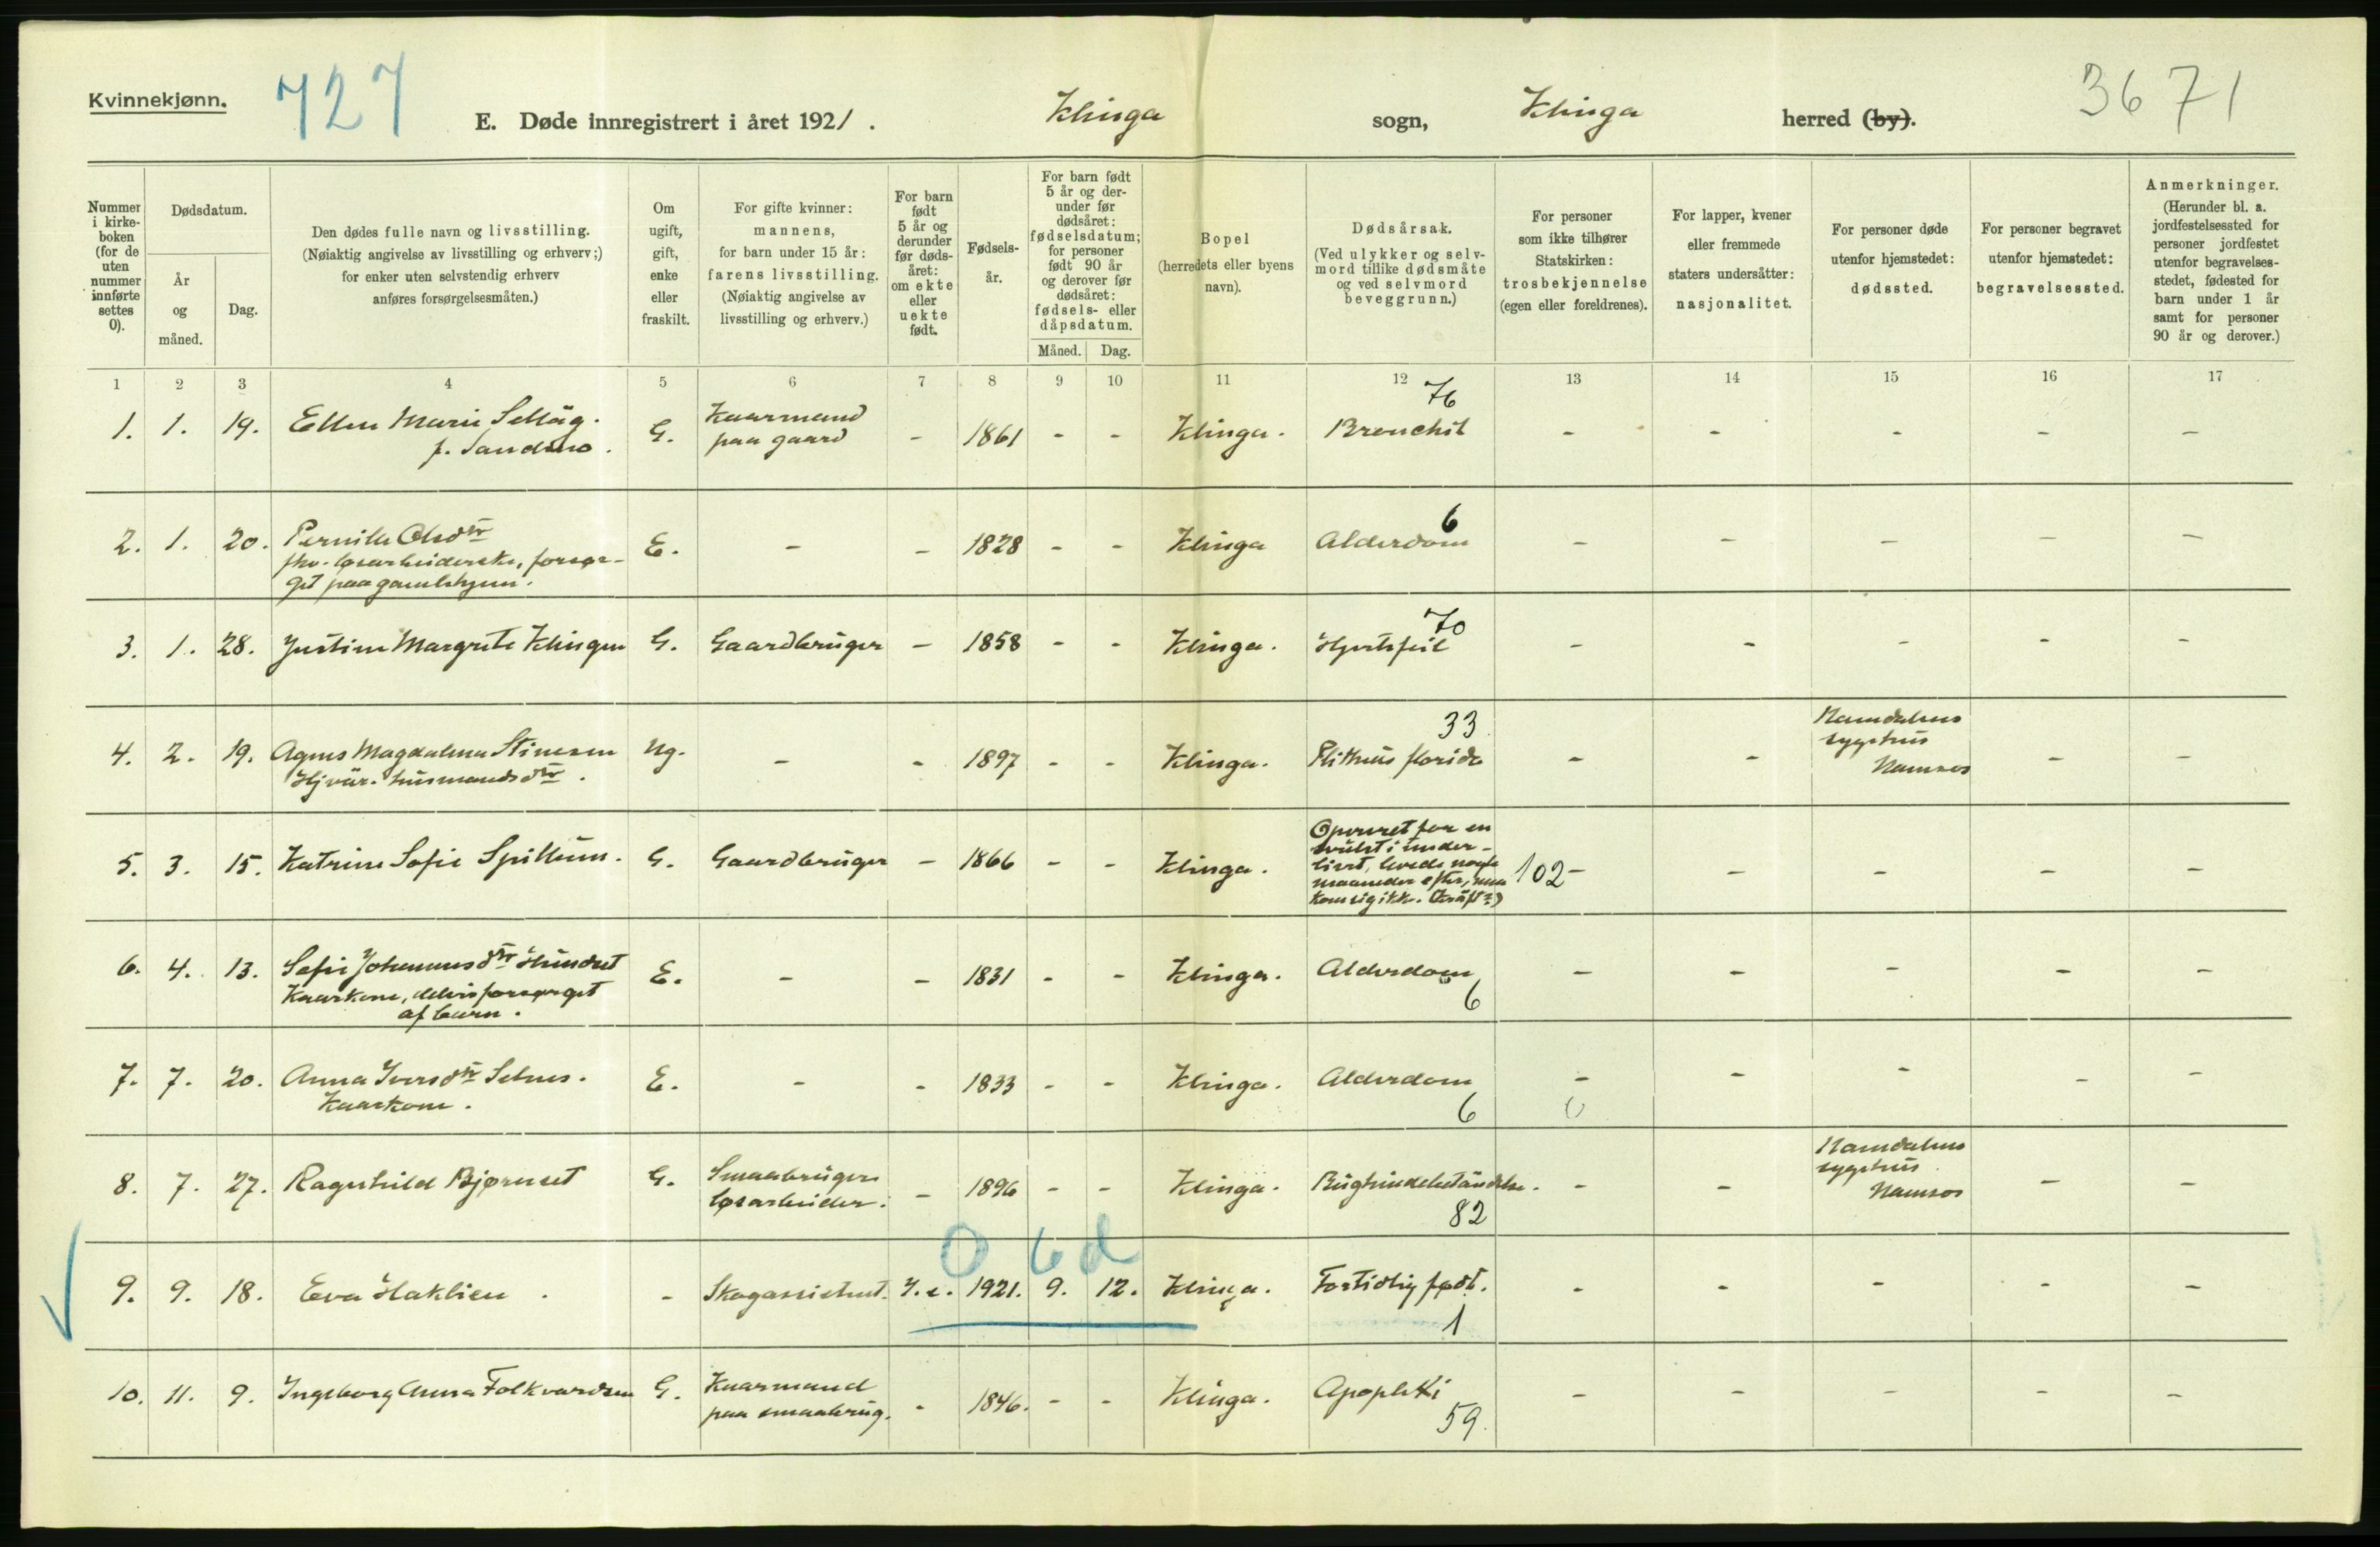 Kvinnekjønn.
727
E. Døde innregistrert i året 1921.
Klinga
sogn,
Klinga
herred (by).
3671
Nummer
i kirke-
boken
(for de
uten
nummer
innførte
settes
0).
Dødsdatum.
År
og
måned.
Dag.
Den dødes fulle navn og livsstilling.
(Nøiaktig angivelse av livsstilling og erhverv;)
for enker uten selvstendig erhverv
anføres forsørgelsesmåten.)
Om
ugift,
gift,
enke
eller
fraskilt.
For gifte kvinner:
mannens,
for barn under 15 år:
farens livsstilling.
(Nøiaktig angivelse av
livsstilling og erhverv.)
For barn
født
5 år og
derunder
før døds-
året:
om ekte
eller
uekte
født.
Fødsels-
år.
For barn født
5 år og der-
under før
dødsåret:
fødselsdatum;
for personer
født 90 år
og derover før
dødsåret:
fødsels- eller
dåpsdatum.
Måned. Dag.
Bopel
(herredets eller byens
navn).
Dødsårsak.
(Ved ulykker og selv-
mord tillike dødsmåte
og ved selvmord
beveggrunn.)
For personer
som ikke tilhører
Statskirken:
trosbekjennelse
(egen eller foreldrenes).
For lapper, kvener
eller fremmede
staters undersåtter:
nasjonalitet.
For personer døde
utenfor hjemstedet:
dødssted.
For personer begravet
utenfor hjemstedet:
begravelsessted.
Anmerkninger.
(Herunder bl. a.
jordfestelsessted for
personer jordfestet
utenfor begravelses-
stedet, fødested for
barn under 1 år
samt for personer
90 år og derover.)
1 2 3 4 5 6 7 8 9 10 11 12 13 14 15 16 17
76
1. 1. 19. Ellen Marie Selläg. G. Kaarmand - 1861 - - Klinga. Bronchit - - - - -
f. Sandmo. paa gaard
6
2. 1. 20. Pernille Olsdtr E. - - 1828 - - Klinga Alderdom - - - - -
fhv. løsarbeiderske, forsør-
get paa gamlehjem.
70
3. 1. 28. Justine Margrete Klingen G. Gaardbruger - 1858 - - Klinga. Hjertefeil - - - - -
33
4. 2. 19. Agnes Magdalena Stinesen Ug. - - 1897 - - Klinga. Phthisis florida - - Namdalens sygehus Namsos - -
Hjvær. husmandsdtr.
5. 3. 15. Katrine Sofie Spillum. G. Gaardbruger - 1866 - - Klinga. Operert for en
svulst i under-
livet, levede nogle
maaneder efter, men
kom sig ikke. (Kræft?)
102 - - - - -
6. 4. 13. Sofie Johannesdtr Hundset E. - - 1831 - - Klinga. Alderdom - - - - -
Kaarkone, delvis forsørget
af børn.
6
7. 7. 20. Anna Iversdtr Selnes. E. - - 1833 - - Klinga. Alderdom - - - - -
Kaarkone.
6
8. 7. 27. Ragnhild Bjørnset G. Smaabruger - 1896 - - Klinga. Bughindebetændelse. - - Namdalens sygehus Namsos - -
løsarbeider.
82
0 6 d
9. 9. 18. Eva Haklien. - Skogassistent. 1921. 9. 12. Klinga. For tidlig født. - - - - -
1
10. 11. 9. Ingeborg Anna Folkvardsen G. Kaarmand - 1846. - - Klinga. Apoplexi - - - - -
paa smaabrug.
59.